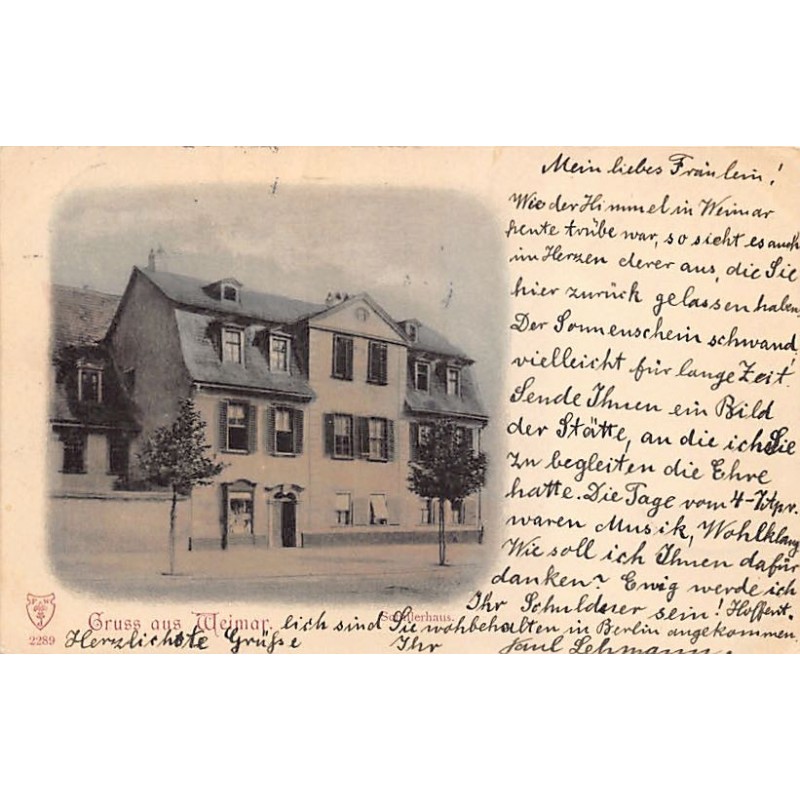 Mein liebes Fräulein!
Wie der Himmel in Weimar
heute trübe war, so sieht es auch
im Herzen derer aus, die Sie
hier zurück gelassen haben.
Der Sonnenschein schwand
vielleicht für lange Zeit.
Sende Ihnen ein Bild
der Stätte, an die ich Sie
zu begleiten die Ehre
hatte. Die Tage vom 4-7. Apr.
waren Musik, Wohlklang
Wie soll ich Ihnen dafür
danken? Ewig werde ich
Ihr Schuldner sein! Hoffent-
lich sind Sie wohbehalten in Berlin angekommen.
Herzlichste Grüße Ihr Paul Lehmann.
Gruss aus Weimar.
Schillerhaus.
2289